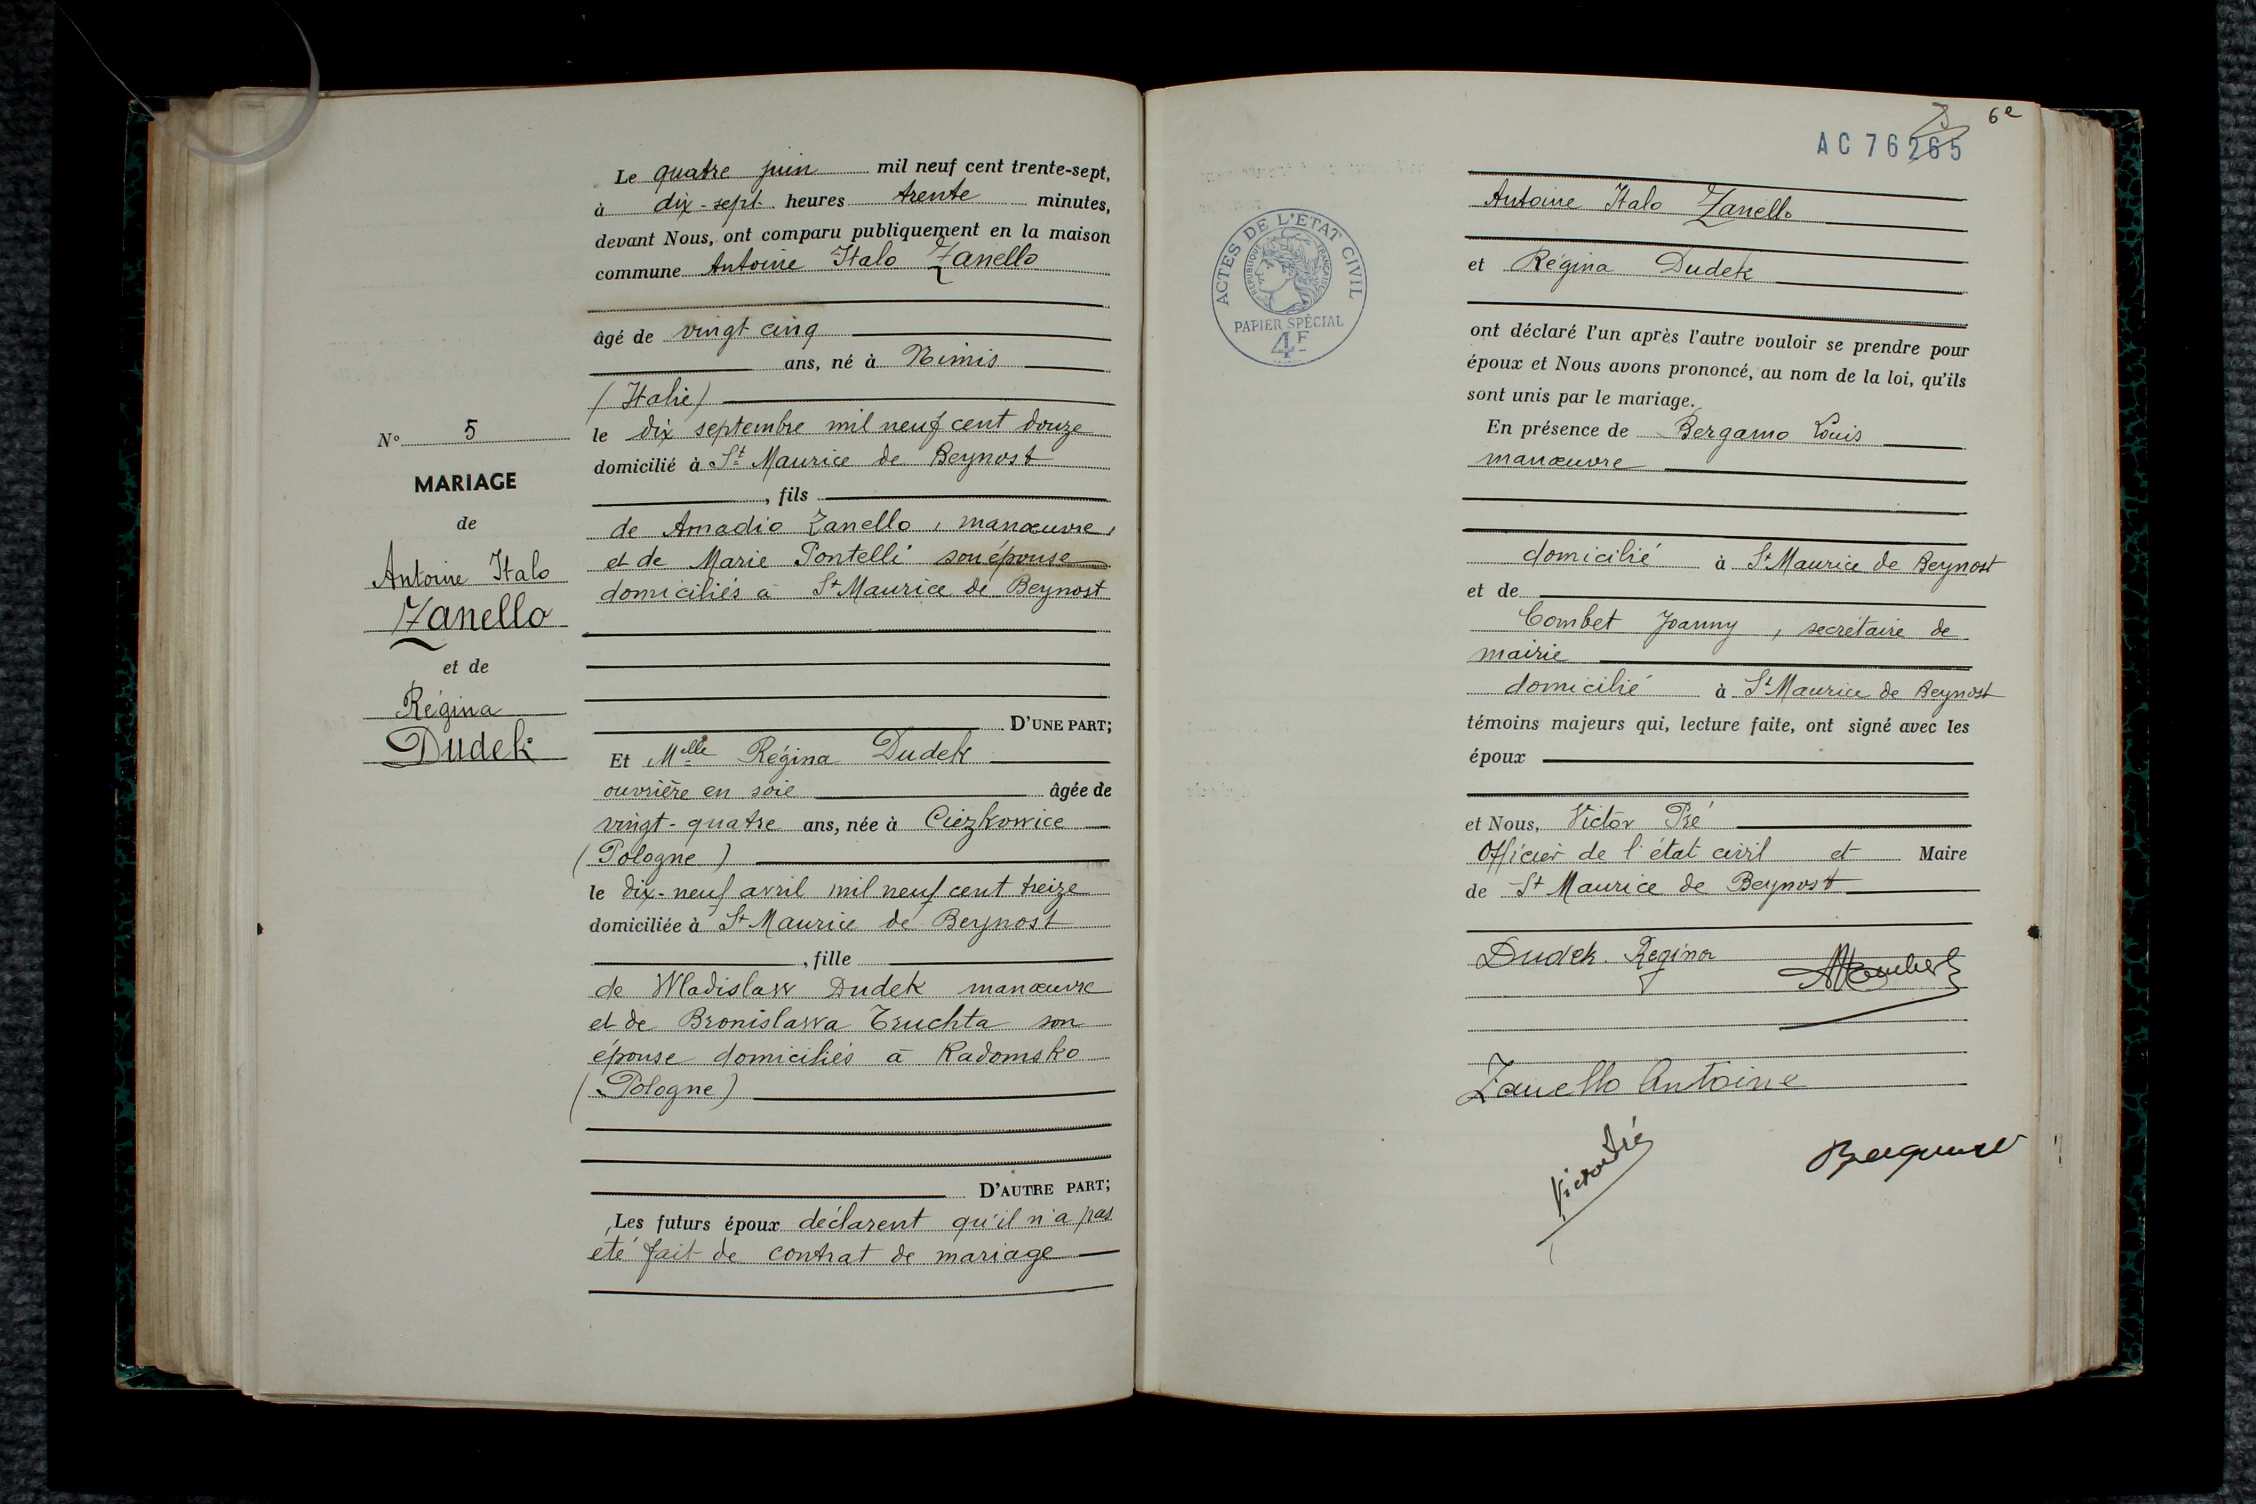 Le quatre juin mil neuf cent trente-sept,
à dix-sept heures trente minutes,
devant Nous, ont comparu publiquement en la maison
commune Antoine Italo Zanello
âgé de vingt cinq
ans, né à Nimis
(Italie)
le dix septembre mil neuf cent douze
domicilié à St Maurice de Beynost
, fils
de Amadio Zanello, manœuvre,
et de Marie Pontelli son épouse
domiciliés à St Maurice de Beynost
D'UNE PART;
Et Melle Régina Dudek
ouvrière en soie âgée de
vingt-quatre ans, née à Ciezkowice
(Pologne)
le dix-neuf avril mil neuf cent treize
domiciliée à St Maurice de Beynost
, fille
de Wladislaw Dudek manœuvre
et de Bronislawa Truchta son
épouse domiciliés à Radomsko
(Pologne)
D'AUTRE PART;
Les futurs époux déclarent qu'il n'a pas
été fait de contrat de mariage
N° 5
MARIAGE
de
Antoine Italo
Zanello
et de
Régina
Dudek
6e
AC 76265
ACTES DE L'ETAT CIVIL
REPUBLIQUE FRANÇAISE
PAPIER SPÉCIAL
4F
Antoine Italo Zanello
et Régina Dudek
ont déclaré l'un après l'autre vouloir se prendre pour
époux et Nous avons prononcé, au nom de la loi, qu'ils
sont unis par le mariage.
En présence de Bergamo Louis
manœuvre
domicilié à St Maurice de Beynost
et de
Combet Joanny, secrétaire de
mairie
domicilié à St Maurice de Beynost
témoins majeurs qui, lecture faite, ont signé avec les
époux
et Nous, Victor Pré
Officier de l'état civil et Maire
de St Maurice de Beynost
Dudek Regina
Zanello Antoine
Victor Pré